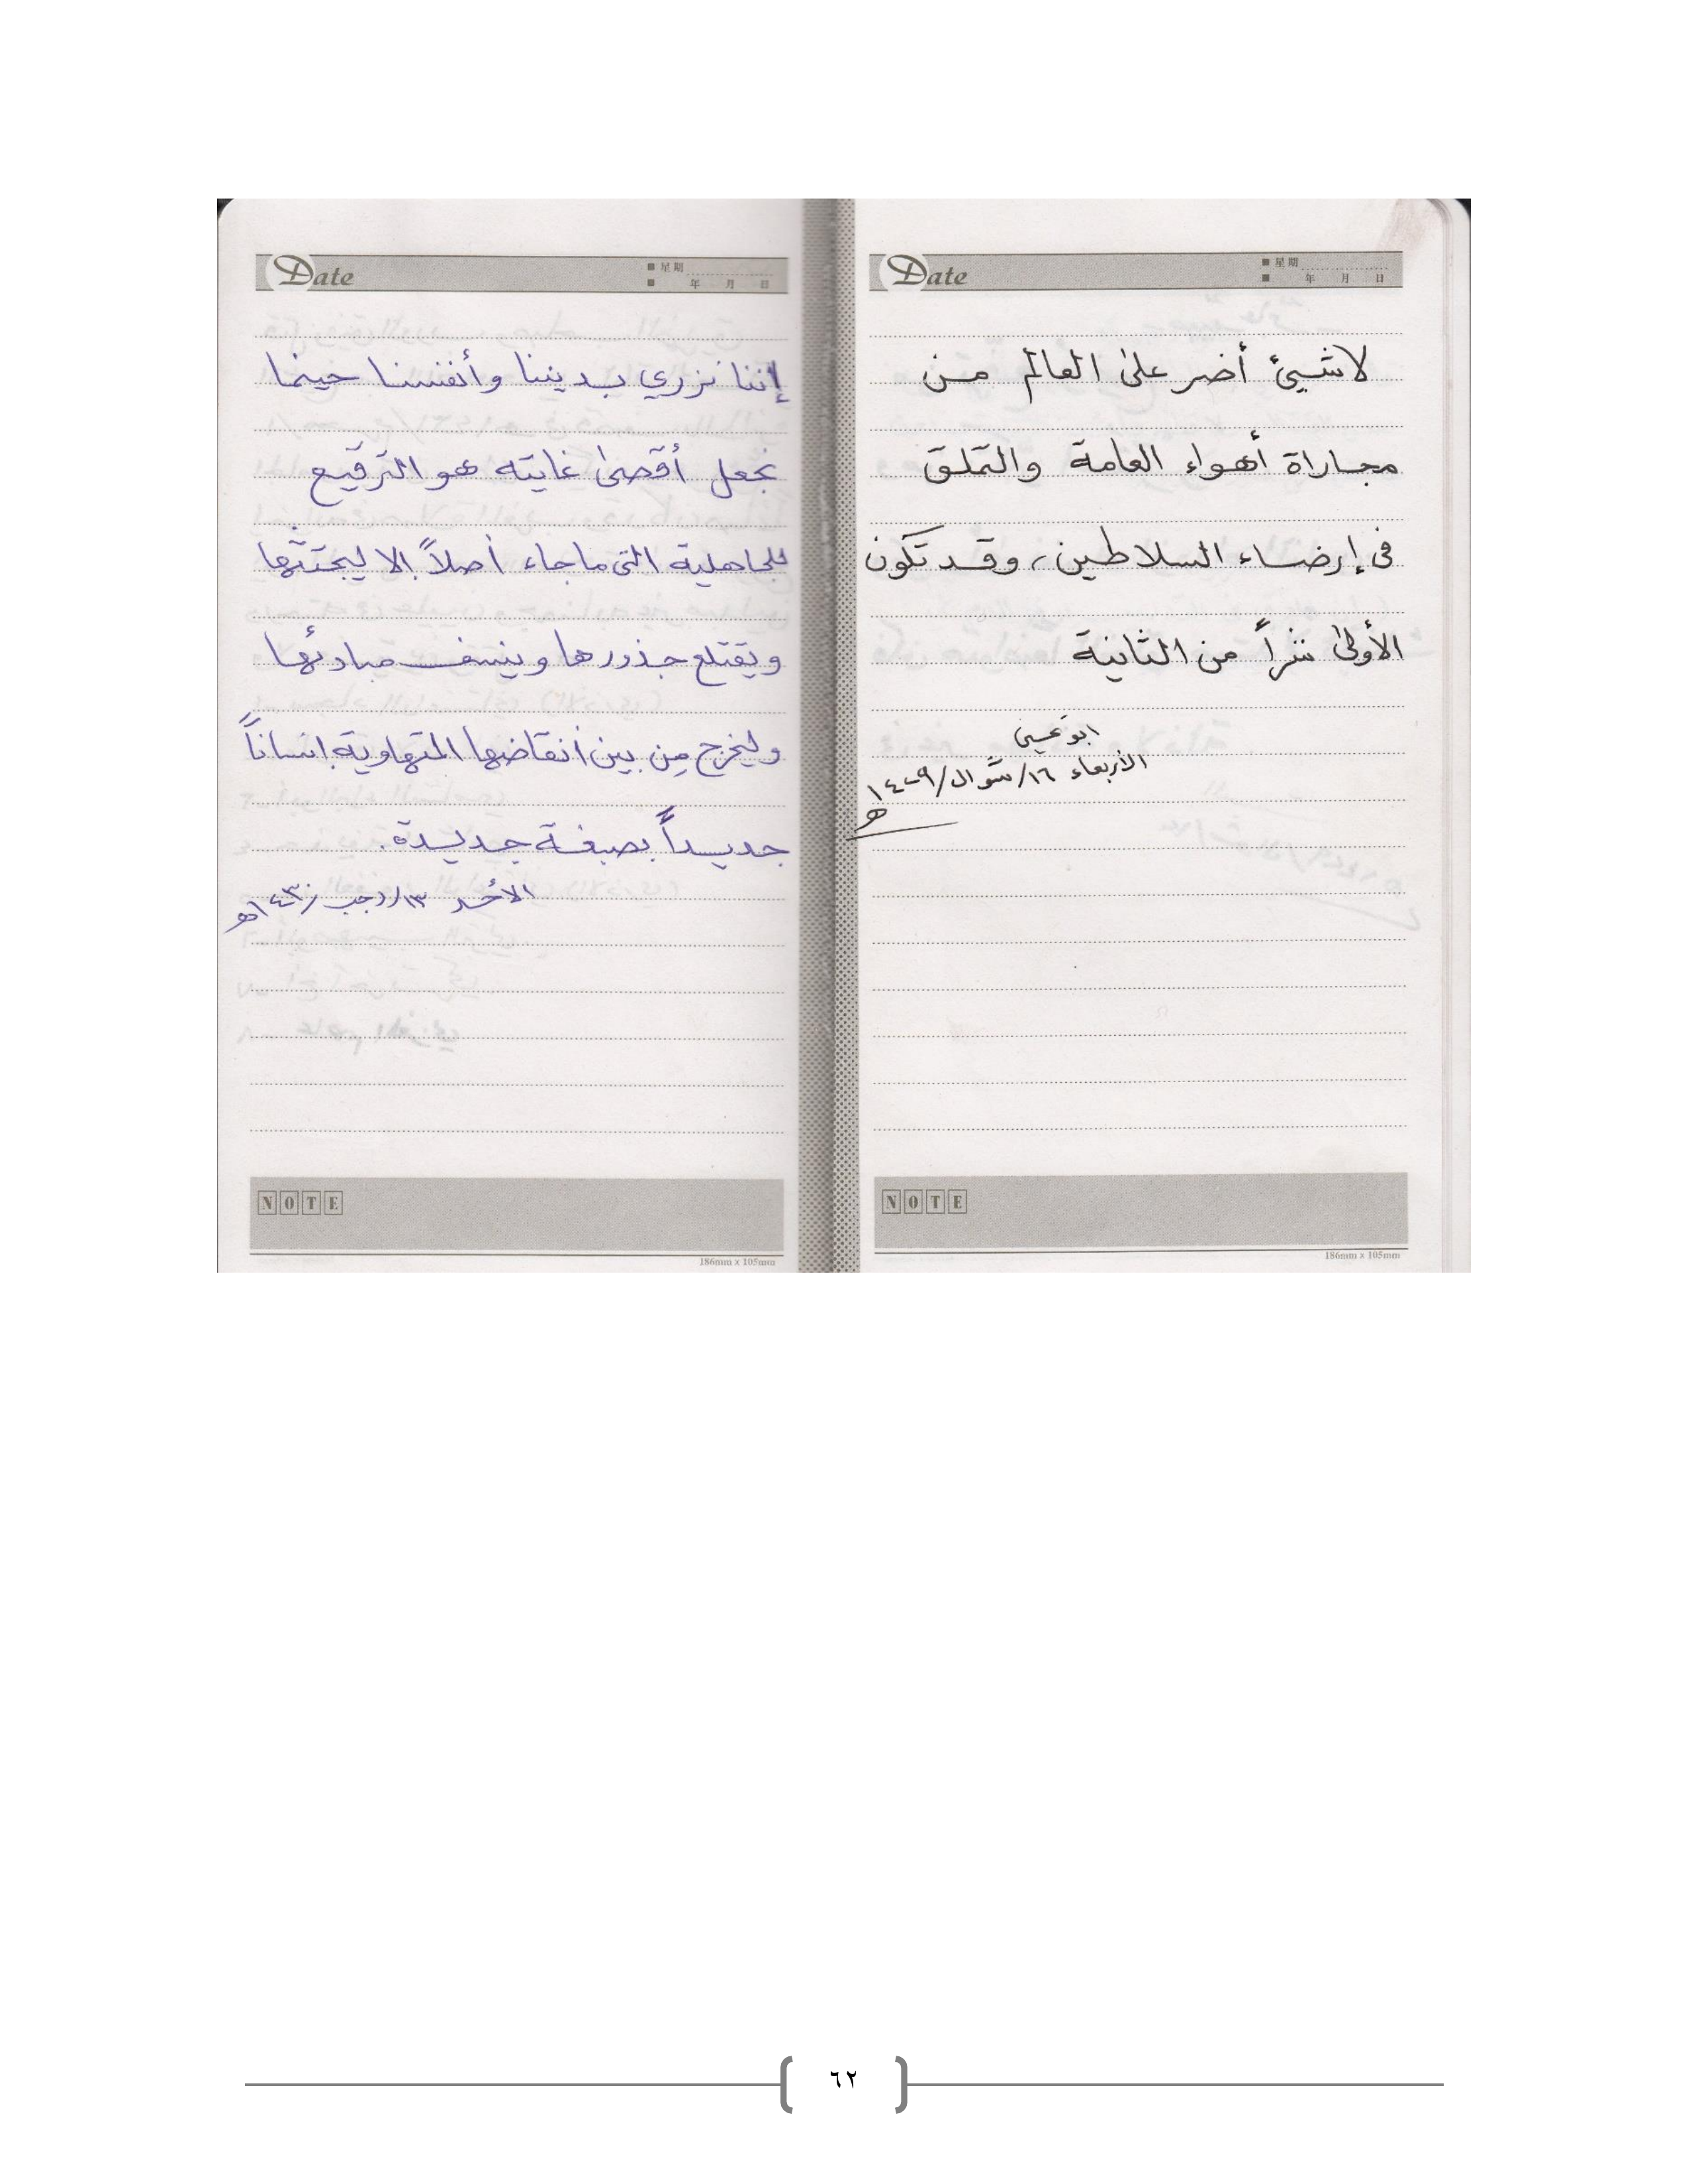 Date
■ 星期
■ 年 月 日
لاشيئ أضر على العالم من
مجاراة أهواء العامة والتملق
فى إرضاء السلاطين، وقد تكون
الأولى شراً من الثانية
ابو عيسى
الأربعاء ١٦/شوال/١٤٢٩
هـ
NOTE
186mm x 105mm
Date
■ 星期
■ 年 月 日
إننا نزري بديننا وأنفسنا حينما
نجعل أقصى غايته هو الترقيع
للجاهلية التى ماجاء أصلاً إلا ليجتثها
ويقتلع جذورها وينسف مبادئها
وليخرج من بين أنقاضها المتهاوية إنساناً
جديداً بصبغة جديدة.
الأحد ١٣/رجب/١٤٣٠هـ
NOTE
186mm x 105mm
٦٢